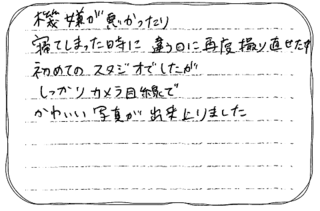 機嫌が悪かったり
寝てしまった時に 違う日に再度撮り直せたり
初めてのスタジオでしたが
しっかりカメラ目線で
かわいい写真が出来上りました